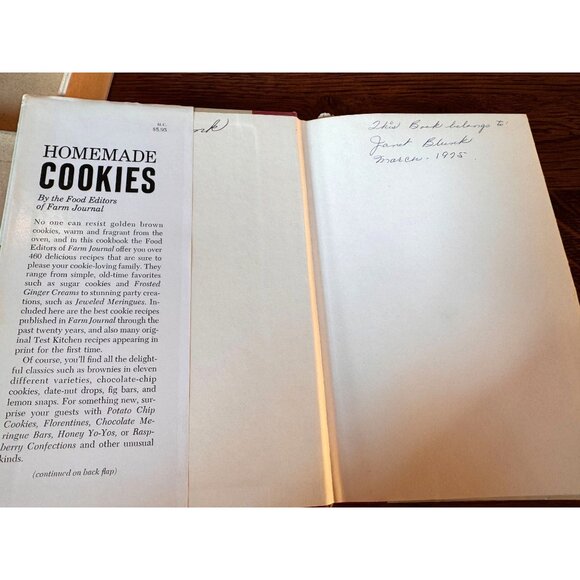 H.C.
$5.95
HOMEMADE
COOKIES
By the Food Editors
of Farm Journal
No one can resist golden brown
cookies, warm and fragrant from the
oven, and in this cookbook the Food
Editors of Farm Journal offer you over
460 delicious recipes that are sure to
please your cookie-loving family. They
range from simple, old-time favorites
such as sugar cookies and Frosted
Ginger Creams to stunning party crea-
tions, such as Jeweled Meringues. In-
cluded here are the best cookie recipes
published in Farm Journal through the
past twenty years, and also many orig-
inal Test Kitchen recipes appearing in
print for the first time.
Of course, you'll find all the delight-
ful classics such as brownies in eleven
different varieties, chocolate-chip
cookies, date-nut drops, fig bars, and
lemon snaps. For something new, sur-
prise your guests with Potato Chip
Cookies, Florentines, Chocolate Me-
ringue Bars, Honey Yo-Yos, or Rasp-
berry Confections and other unusual
kinds.
(continued on back flap)
This Book belongs to:
Janet Blunk
March - 1975